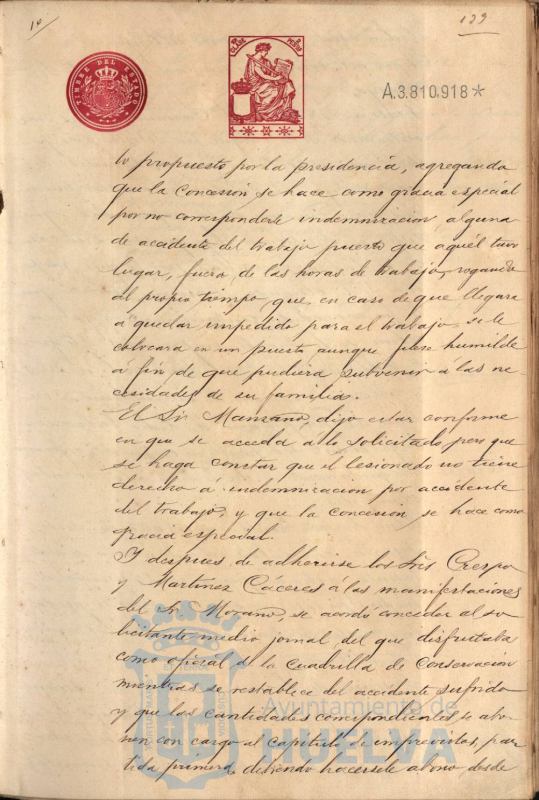 1º
139
TIMBRE DEL ESTADO
10ª CLASE 2 PESETAS
A.3.810.918*
lo propuesto por la presidencia, agregando
que la concesión se hace como gracia especial
por no corresponderle indemnizacion alguna
de accidente del trabajo puesto que aquél tuvo
lugar, fuera de las horas de trabajo, rogando
al propio tiempo, que en caso de que llegara
a quedar impedido para el trabajo se le
colocara en un puesto aunque fuese humilde
á fin de que pudiera subvenir a las ne-
cesidades de su familia.
El Sr. Manzano, dijo estar conforme
en que se acceda a lo solicitado pero que
se haga constar que el lesionado no tiene
derecho á indemnizacion por accidente
del trabajo, y que la concesion se hace como
gracia especial.
Y despues de adherirse los Sres Crespo
y Martinez Cáceres á las manifestaciones
del Sr. Morano, se acordó conceder al so-
licitante medio jornal, del que disfrutaba
como oficial de la Cuadrilla de Conservación
mientras se restablece del accidente sufrido
y que las cantidades correspondientes se abo-
nen con cargo al capitulo de imprevistos, par-
tida primera, debiendo hacersele abono desde
Ayuntamiento de
HUELVA